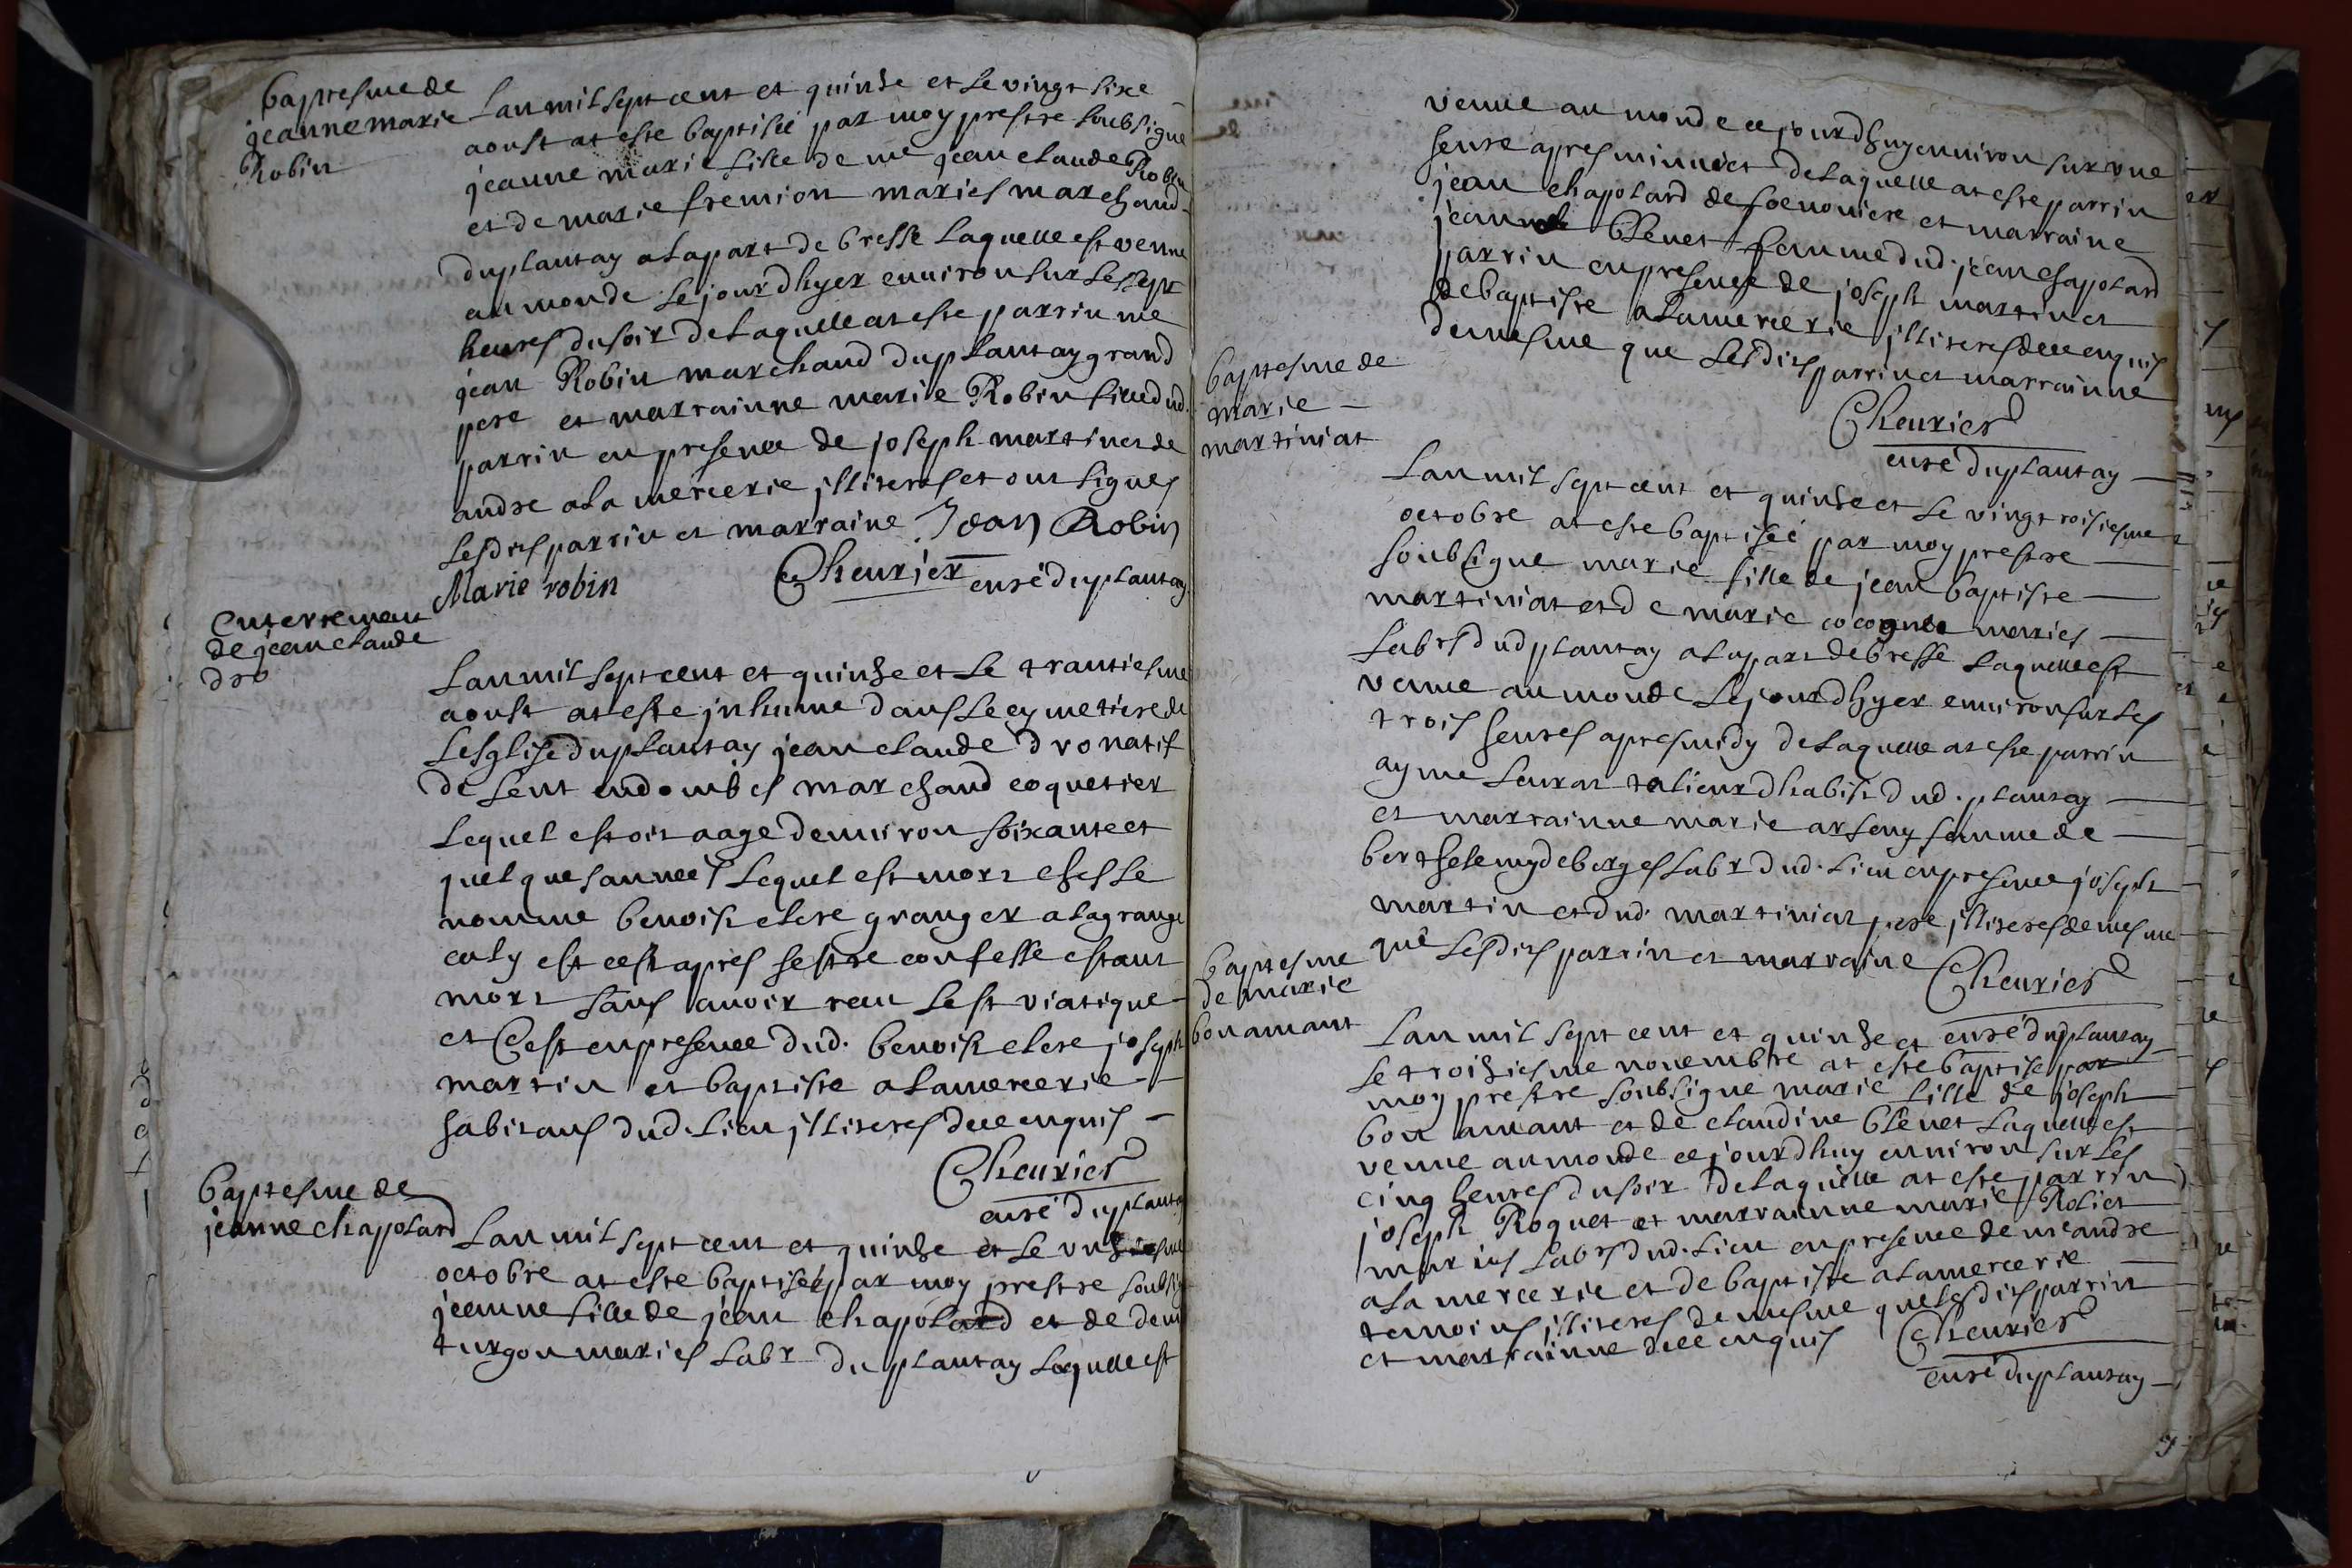 baptesme de
jeanne marie
Robin
Lan mil sept cent et quinse et le vingt sixe
aoust at este baptisée par moy prestre soubsigne
jeanne marie fille de me jean claude Robin
et de marie fremion maries marchand
du plantay a la part de bresse laquelle est venue
au monde le jour dhyer environ sur les sept
heures du soir de laquelle at este parrin me
jean Robin marchand du plantay grand
pere et marrainne marie Robin fille dud.
parrin en presence de joseph martin et de
andre a la mercerie jlliteres et ont signes
lesdits parrin et marraine Jean Robin
Marie robin
Cheurier curé du plantay
enterrement
de jean claude
dro
Lan mil sept cent et quinse et le trantiesme
aoust at este jnhume dans le cymetiere de
lesglise du plantay jean claude dro natif
de sent en dombes marchand coquetier
lequel estoit aage denuiron soixante et
quelques annees lequel est mort ches le
nomme benoist clere granger a la grange
caty est cest apres sestre confesse estant
mort sans auoir receu le st viatique
et cest en presence dud. benoist clere joseph
martin et baptiste a la mercerie
habitans dud. lieu jlliteres deee enquis
Cheurier
curé du plantay
baptesme de
jeanne chapolard
Lan mil sept cent et quinse et le vnsiesme
octobre at este baptisée par moy prestre soubsig
jeanne fille de jean chapolard et de
turgon maries labr du plantay laquelle est
venue au monde ce jourdhuy enuiron sur vne
heure apres minuict de laquelle at este parrin
jean chapolard de et marraine
jeanne blenet femme dud. jean chapolard
parrin en presence de joseph martin et
de baptiste a la mercerie jlliteres deee enquis
de mesme que lesdits parrin et marrainne
Cheurier
curé du plantay
baptesme de
marie
martiniat
Lan mil sept cent et quinse et le vingt roisiesme
octobre at este baptisée par moy prestre
soubsigne marie fille de jean baptiste
martiniat et de marie cocogne maries
labrs dud plantay a la part de bresse laquelle est
venue au monde le jour dhyer enuiron sur les
trois heures apres midy de laquelle at este parrin
ayme talieur dhabist dud. plantay
et marrainne marie femme de
berthelemy deborges labr dud. lieu en presence joseph
martin et dud. martiniat pere jlliteres de mesme
que lesdits parrin et marraine Cheurier
curé du plantay
baptesme
de marie
bon amant
Lan mil sept cent et quinse et
le troisiesme nouembre at este baptise par
moy prestre soubsigne marie fille de joseph
bon amant et de claudine blenet laquelle est
venue au monde ce jourdhuy enuiron sur les
cinq heures du soir de laquelle at este parrin
joseph Roquet et marrainne marie Roliet
maries labrs dud. lieu en presence de me andre
a la mercerie et de baptiste a la mercerie
temoins jlliteres de mesme que lesdits parrin
et marrainne deee enquis Cheurier
curé du plantay